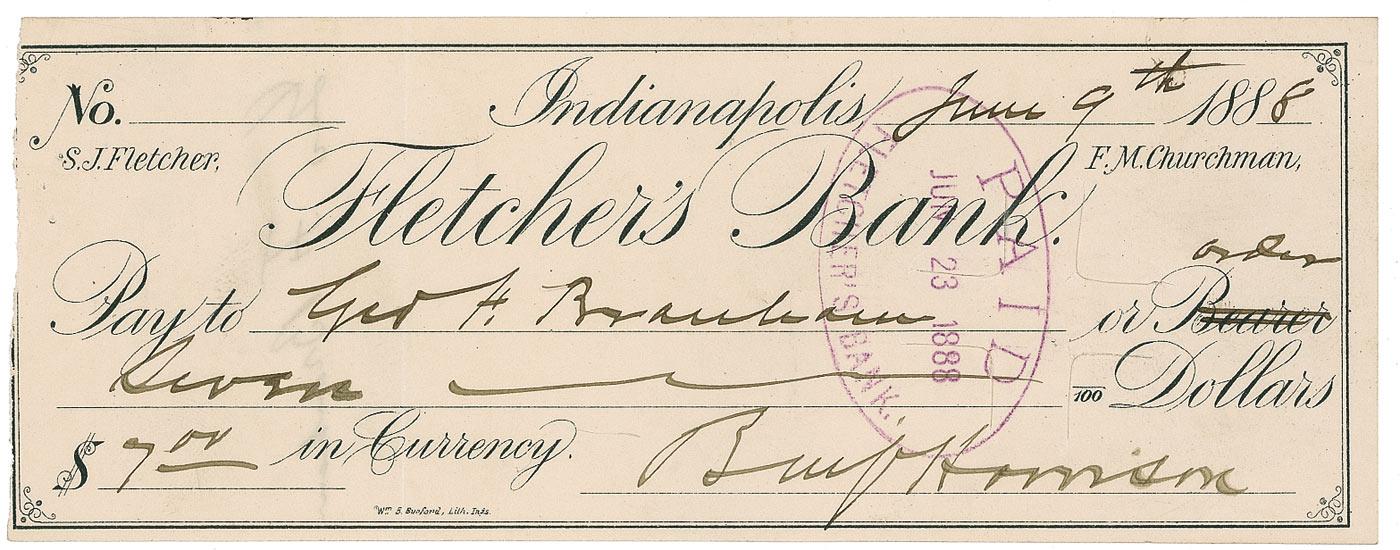 No. Indianapolis, June 9th 1888
S.J. Fletcher, F.M. Churchman,
Fletcher's Bank.
order
Pay to Geo F. Branham or Bearer
Seven /100 Dollars
$ 7 00 in Currency. Benj Harrison
Wm B. Burford, Lith. Inds.
PAID
JUN 23 1888
FLETCHER'S BANK.